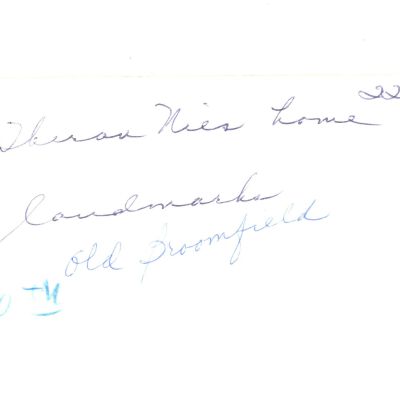 Theron Nies home 22
Landmarks
Old Broomfield
0 TH